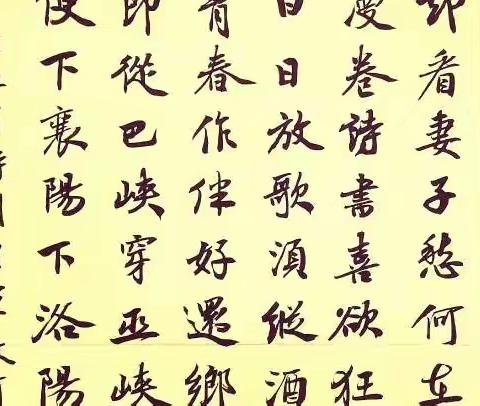 却看妻子愁何在
漫卷詩書喜欲狂
白日放歌須縱酒
青春作伴好還鄉
即從巴峽穿巫峽
便下襄陽下洛陽